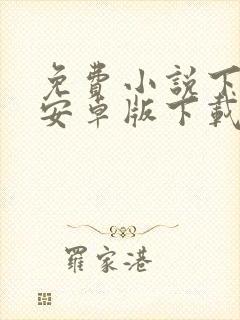 免費小說下
安卓版下載
羅家港